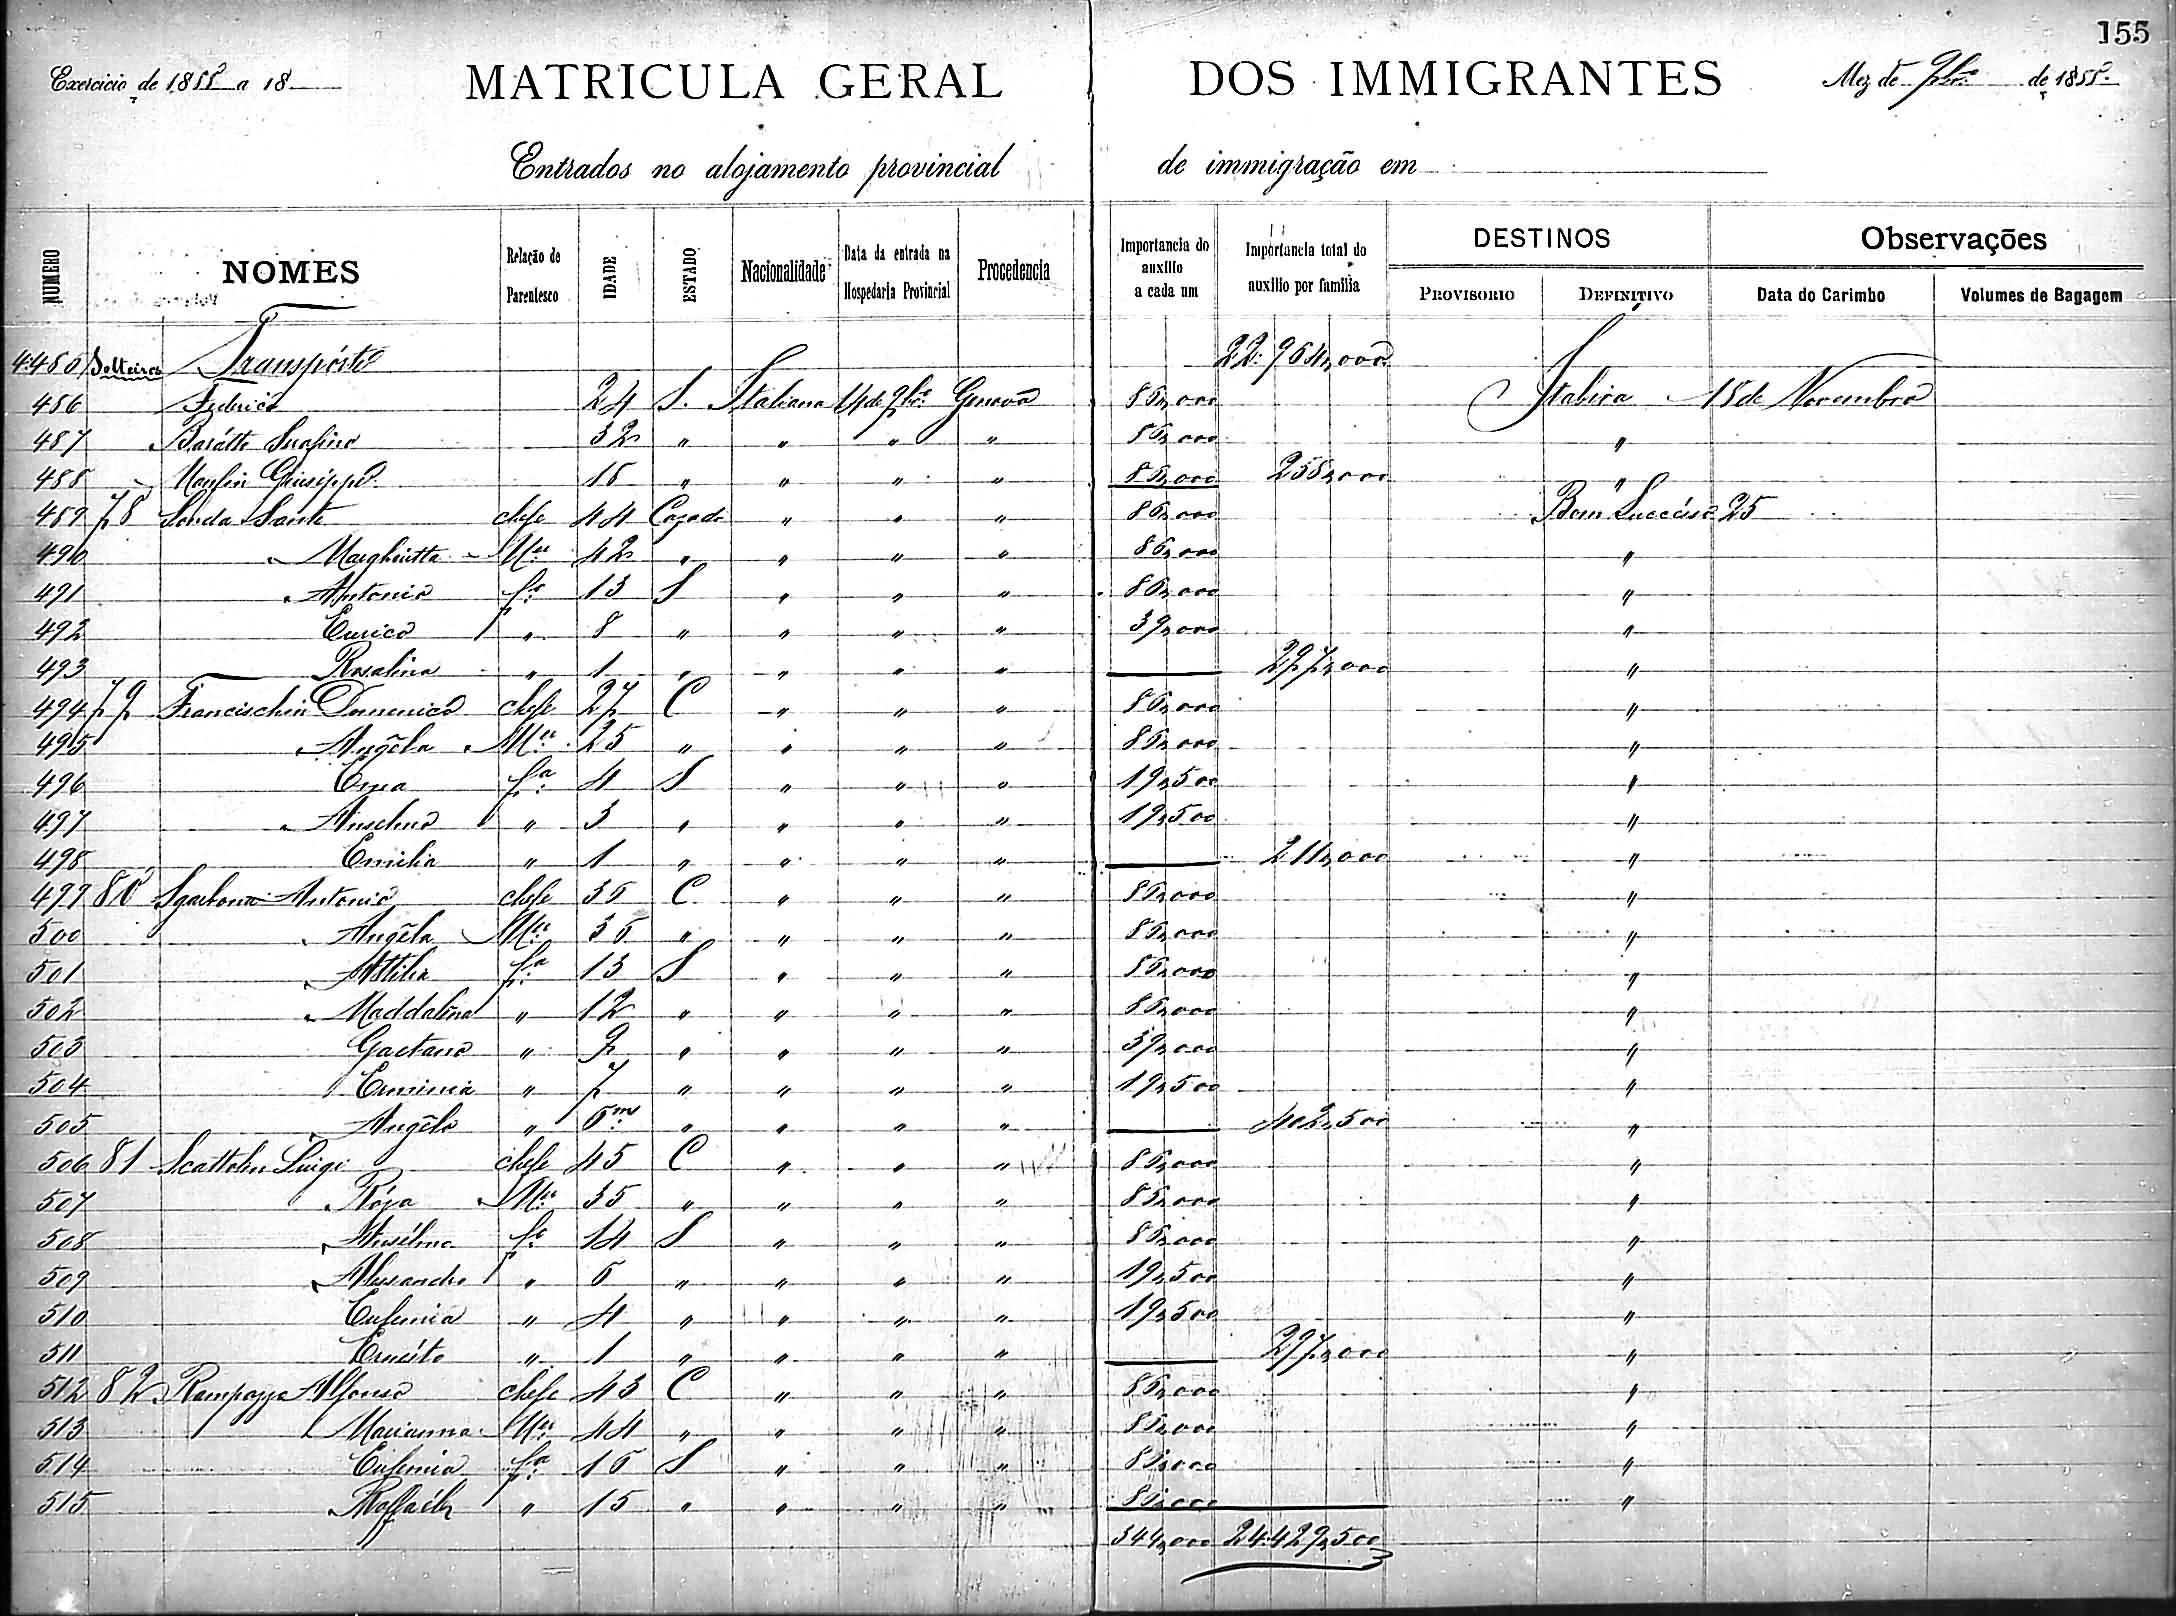 155
Exercicio de 1888 a 18
MATRICULA GERAL DOS IMMIGRANTES
Mez de 9bro de 1888
Entrados no alojamento provincial de immigração em
NUMERO NOMES Relação de Parentesco IDADE ESTADO Nacionalidade Data da entrada na Hospedaria Provincial Procedencia Importancia do auxilio a cada um Importancia total do auxilio por familia DESTINOS PROVISORIO DEFINITIVO Observações Data do Carimbo Volumes de Bagagem
Solteiros Transpórte 22:964,000
486 Federico 24 S. Italiana 14 de 9bro Genova 86,000 Itabira 18 de Novembro
487 Serafino 32 " " " " 86,000 "
488 Giuseppe 18 " " " " 86,000 258,000 "
489 78 Sonda Sante chefe 44 Cazado " " " 86,000 Bom Succésso 25
490 " Margheritta Mer 42 " " " " 86,000 "
491 " Antonio fo 13 S " " " 86,000 "
492 Enrico " 8 " " " " 39,000 "
493 Rosalina " 1 " " " " 297,000 "
494 79 Francischin Domenico chefe 27 C " " " 86,000 "
495 " Angéla Mer 25 " " " " 86,000 "
496 Ema fa 4 S " " " 19,500 "
497 " Anselmo " 3 " " " " 19,500 "
498 Emilia " 1 " " " " 211,000 "
499 80 Antonio chefe 36 C " " " 86,000 "
500 " Angéla Mer 36 " " " " 86,000 "
501 " Attilia fa 13 S " " " 86,000 "
502 " Maddalena " 12 " " " " 86,000 "
503 Gaetano " 9 " " " " 39,000 "
504 Erminia " 7 " " " " 19,500 "
505 " Angélo " 6ms " " " " 402,500 "
506 81 Scattolin Luigi chefe 45 C " " " 86,000 "
507 " Róza Mer 35 " " " " 86,000 "
508 " Ansélmo fo 14 S " " " 86,000 "
509 " Alessandro " 6 " " " " 19,500 "
510 Eufemia " 4 " " " " 19,500 "
511 Ernésto " 1 " " " " 297,000 "
512 82 Rampazzo Alfonso chefe 43 C " " " 86,000 "
513 Marianna Mer 44 " " " " 86,000 "
514 Eufemia fa 16 S " " " 86,000 "
515 Raffaéle " 15 " " " " 86,000 "
344,000 24:429,500